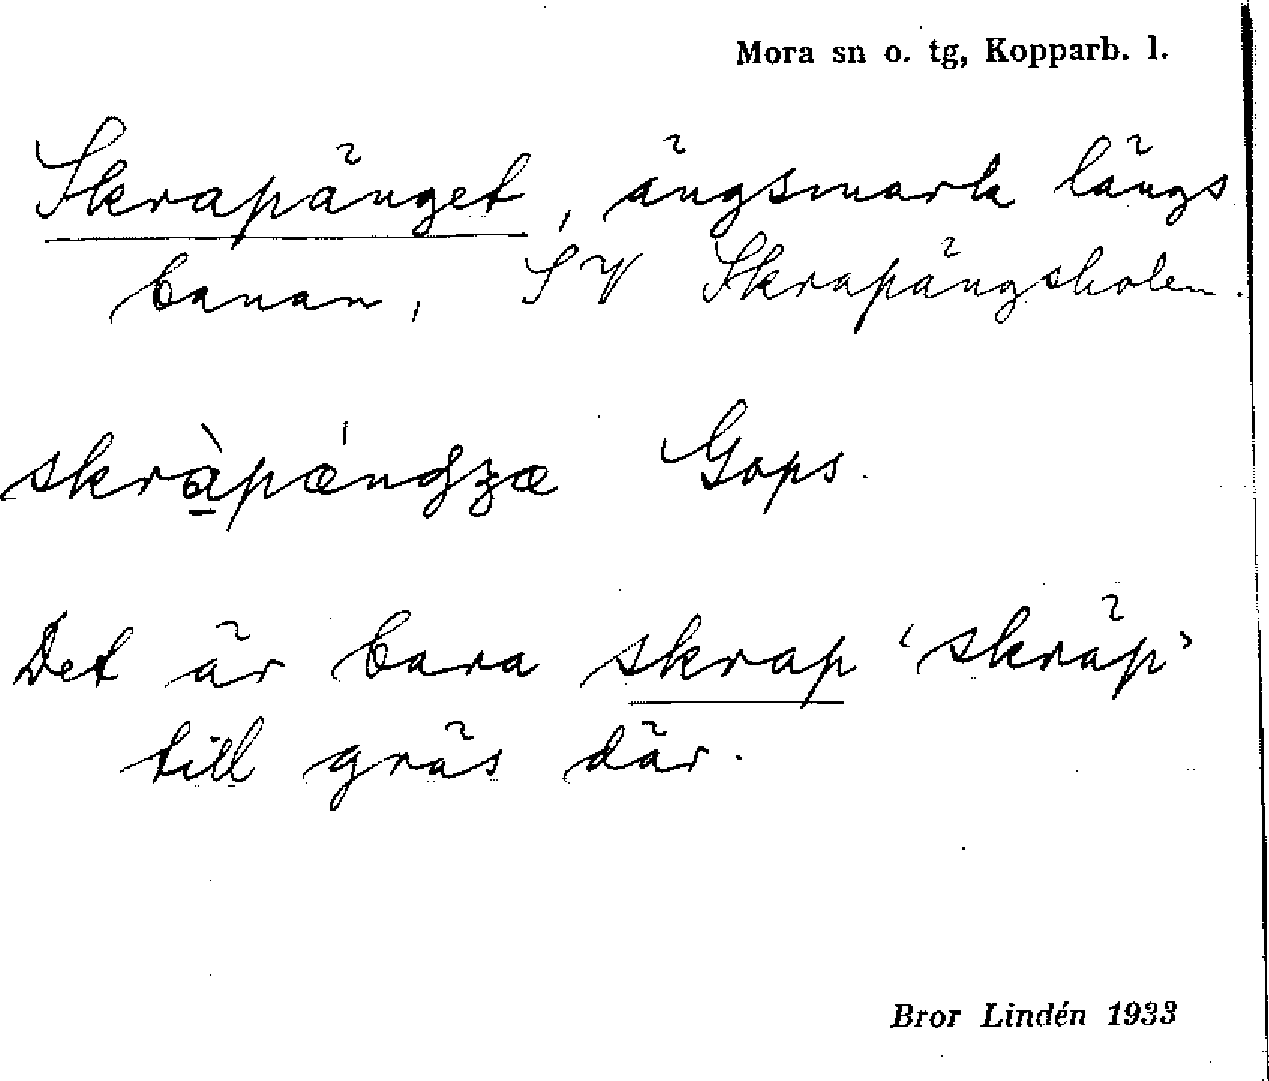 Mora sn o. tg, Kopparb. l.
Skrapänget, ängsmark längs
banan, SV Skrapängsholen.
skrà̱pǽndʒæ Gops.
Det är bara skrap 'skräp'
till gräs där.
Bror Lindén 1933